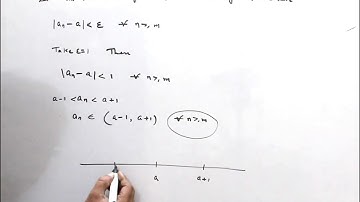 |aₙ - a| < ε ∀ n ≥, m
Take ε=1 Then
|aₙ - a| < 1 ∀ n ≥, m
a-1 < aₙ < a+1
aₙ ∈ (a-1, a+1) ∀ n ≥, m
a a+1